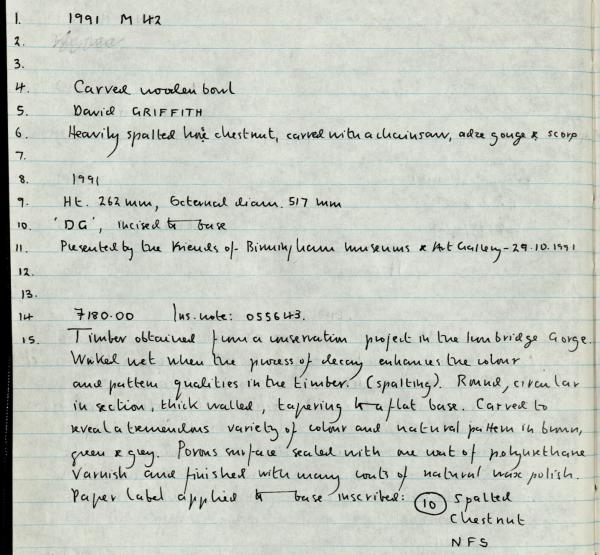 1. 1991 M42
2.
3.
4. Carved wooden bowl
5. David GRIFFITH
6. Heavily spalted horse chestnut, carved with a chainsaw, adze gouge & scorp
7.
8. 1991
9. Ht. 262 mm, External diam. 517 mm
10. 'DG', incised to base
11. Presented by the Friends of Birmingham Museums & Art Gallery - 29.10.1991
12.
13.
14 £180.00 Ins. note: 055643.
15. Timber obtained from a conservation project in the Ironbridge Gorge.
Worked wet when the process of decay enhances the colour
and pattern qualities in the timber. (spalting). Round, circular
in section, thick walled, tapering to a flat base. Carved to
reveal a tremendous variety of colour and natural pattern in brown,
green & grey. Porous surface sealed with one coat of polyurethane
varnish and finished with many coats of natural wax polish.
Paper label applied to base inscribed: 10 Spalted
Chestnut
NFS